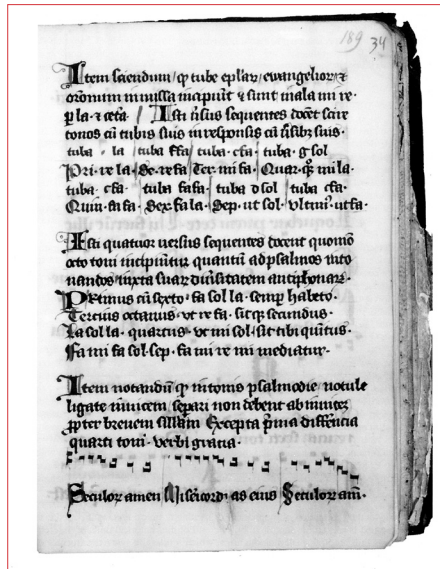 189 34
Item sciendum / qƺ tube ep̄lar̄ / ewangelior̄ / ⁊
or̄onum in missa incipiūt ⁊ sunt in la mi re ·
p̱ la · ⁊ cet̄a / Isti ūsus sequentes docēt scire
tonos cū tubis suis in responsis cū ūsibꝫ suis ·
tuba · la tuba ffa / tuba · cfa · tuba · g sol
Pri · re la · Se · re fa / Ter · mi fa · Quar · qꝫ mi la ·
tuba · cfa · tuba fa fa · / tuba d sol / tuba cfa ·
Quin · fa fa / Sex · fa la · Sep · ut sol · vltim⁹ · ut fa ·
Isti quatuor uersus sequentes docent quomō
octo toni incipiūtur quantū ad psalmos into
nandos iuxta suaꝝ diūsitatem antiphonaꝝ ·
Primus cū sexto · fa sol la · semp̱ habeto ·
Tercius octauus · vt re fa · sicqꝫ secundus ·
La sol la · quartus · vt mi sol · sit tibi quītus ·
Fa mi fa sol · sep · fa mi re mi mediatur ·
Item notandū qƺ in tonis psalmodie / notule
ligate inuicem / separi non debent ab inuicē
ꝓpter breuem sillabā Excepta p̄ma differētia
quarti toni · verbi gratia ·
Seculoꝝ amen Misericord · as eius Seculoꝝ am̄ ·